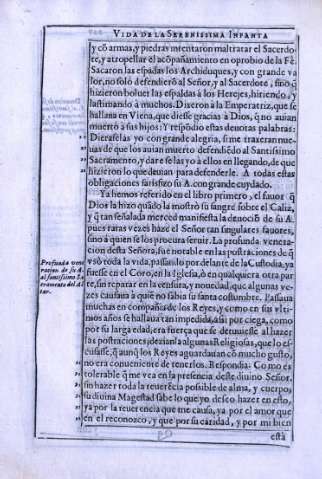 VIDA DE LA SERENISSIMA INFANTA
y cõ armas, y piedras intentaron maltratar el Sacerdo-
te, y atropellar el acõpañamiento en oprobio de la Fè.
Sacaron las espadas los Archiduques, y con grande va
lor, no solo defendierõ al Señor, y al Sacerdote, sino q̃
hizieron boluer las espaldas à los Herejes, hiriendo, y
lastimando à muchos. Dixeron à la Emperatriz, que se
hallaua en Viena, que diesse gracias à Dios, q̃ no auian
muerto à sus hijos: Y respõdio estas deuotas palabras:
Dieraselas yo con grande alegria, si me traxeran nue-
uas de que los auian muerto defendiẽdo al Santissimo
Sacramento, y dareselas yo à ellos en llegando, de que
hizieron lo que deuian para defenderle. A todas estas
obligaciones satisfizo su A. con grande cuydado.
Ya hemos referido en el libro primero, el fauor q̃
Dios la hizo quãdo la mostrò su sangre sobre el Caliz,
y q̃ tan señalada merced manifiesta la deuociõ de su A.
pues raras vezes haze el Señor tan singulares fauores,
sino à quien se los procura seruir. La profunda venera-
cion desta Señora, fue notable en las postraciones de q̃
vsò toda la vida, passando por delante de la Custodia, ya
fuesse en el Coro, en la Iglesia, ò en qualquiera otra par
te, sin reparar en la censura, y nouedad, que algunas ve-
zes causaua à quiẽ no sabia su santa costumbre. Passaua
muchas en compañia de los Reyes, y como en sus vlti-
mos años se hallaua tan impedida, assi por ciega, como
por su larga edad, era fuerça que se detuuiesse al hazer
las postraciones; dezianla algunas Religiosas, que lo es-
cusasse, q̃ aunq̃ los Reyes aguardauan cõ mucho gusto,
no era conueniente de tenerlos. Respondia: Como es
tolerable q̃ me vea en la presencia deste diuino Señor,
sin hazer toda la reuerẽcia possible de alma, y cuerpo;
su diuina Magestad sabe lo que yo deseo hazer en esto,
ya por la reuerencia que me causa, ya por el amor que
en el reconozco, y que por su caridad, y por mi bien
està
Profunda vene-
racion de su A.
al santissimo Sa-
cramento del Al-
tar.